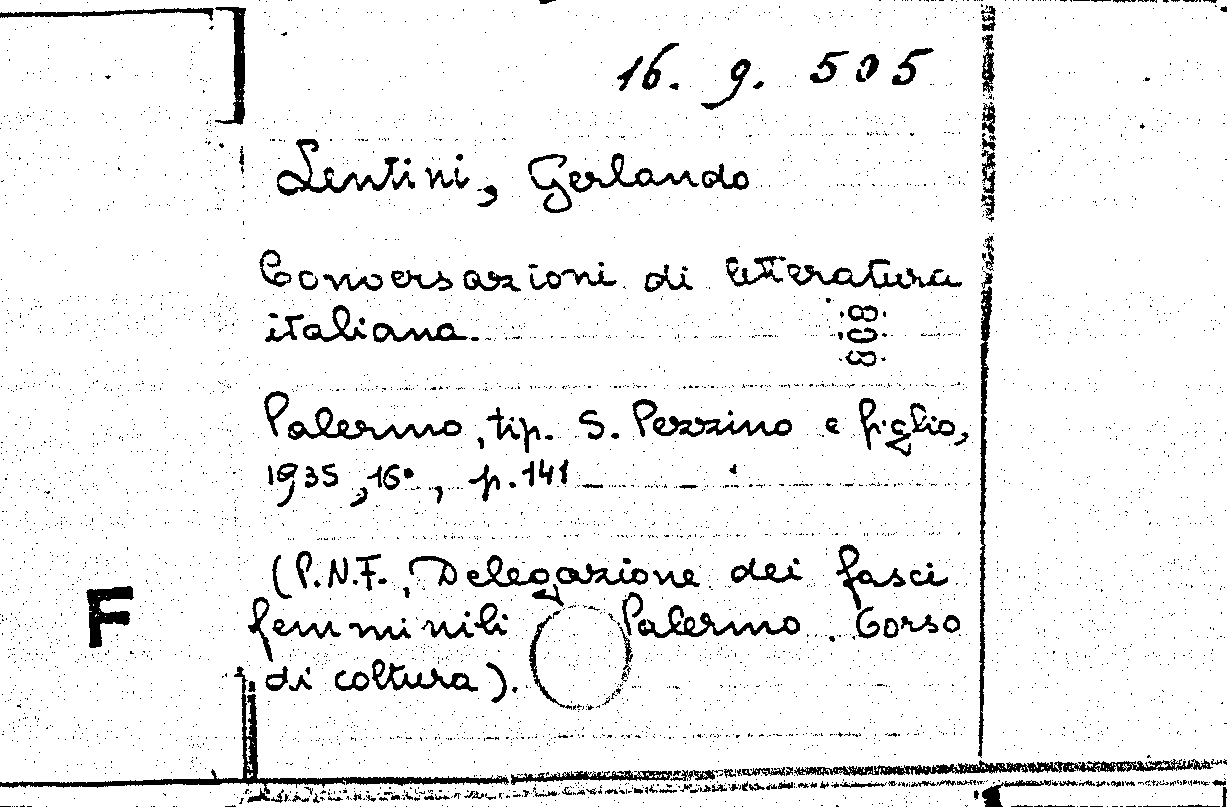 16. 9. 505
Lentini, Gerlando
Conversazioni di letteratura
italiana.
808
Palermo, tip. S. Pezzino e figlio,
1935, 16°, p. 141
(P.N.F., Delegazione dei fasci
F
femminili Palermo. Corso
di coltura).